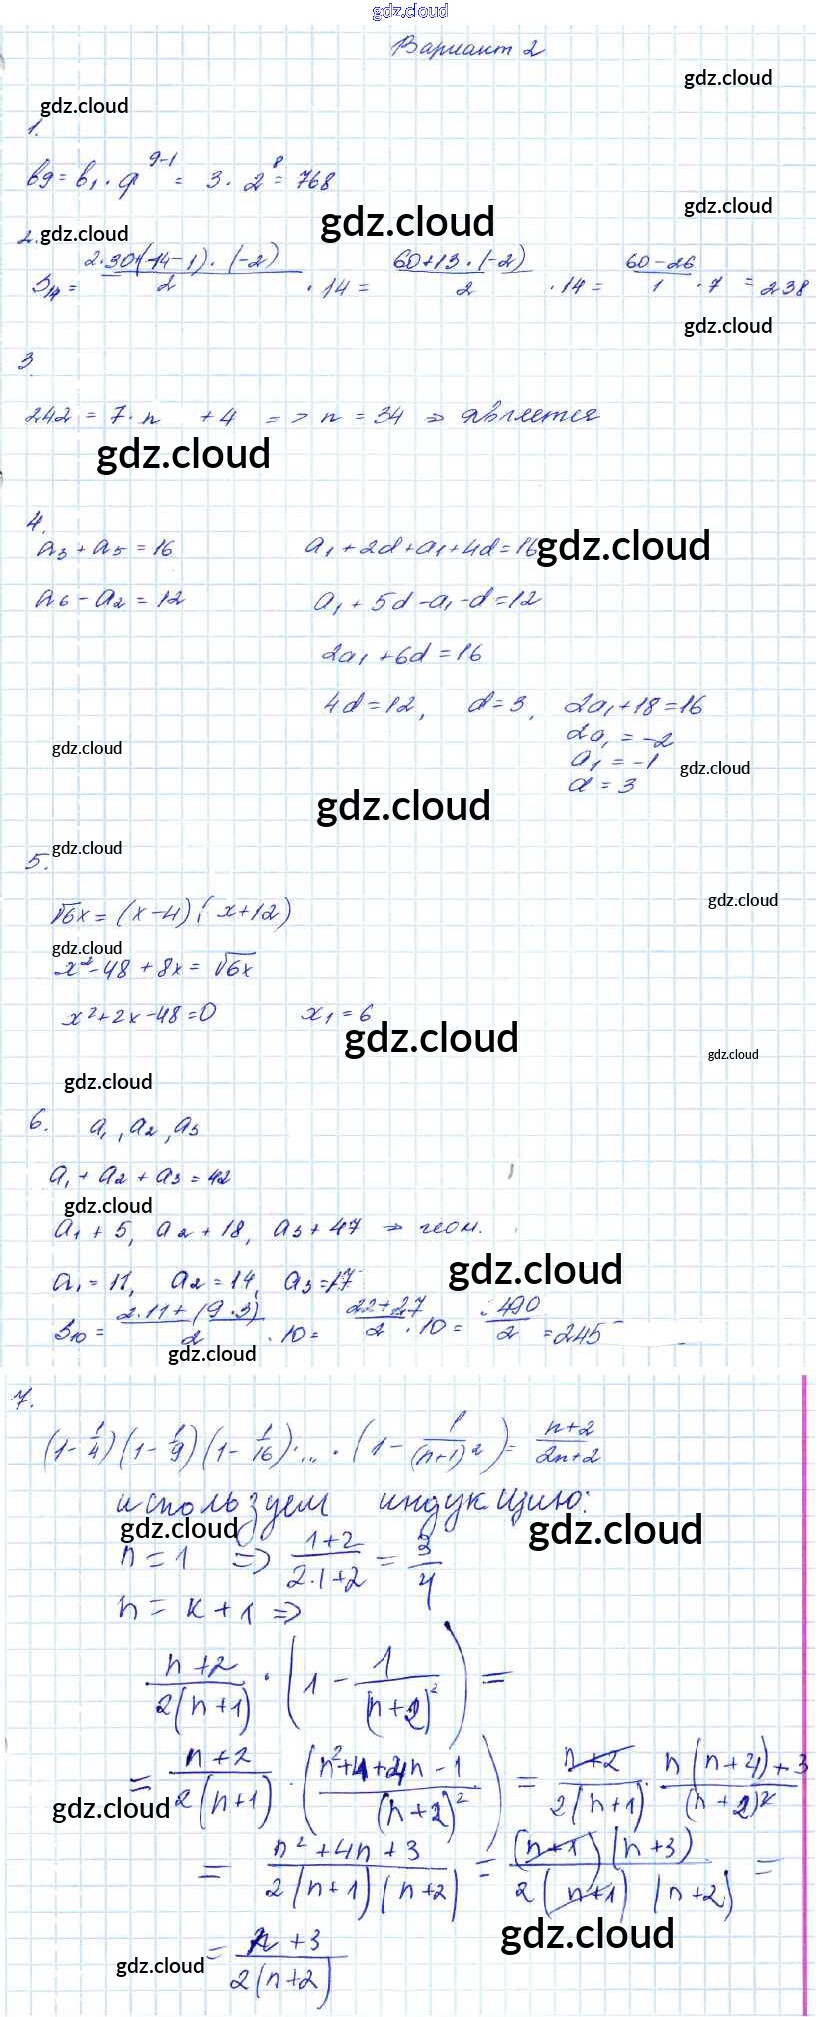 gdz.cloud
Вариант 2
gdz.cloud
gdz.cloud
1.
b9 = b1 · q^(9-1) = 3 · 2^8 = 768
gdz.cloud
gdz.cloud
gdz.cloud
2.
S14 = (2·30+(14-1)·(-2))/2 · 14 = (60+13·(-2))/2 · 14 = (60-26)/1 · 7 = 238
gdz.cloud
3
242 = 7·n + 4 => n = 34 => является
gdz.cloud
4.
a3 + a5 = 16 a1 + 2d + a1 + 4d = 16
gdz.cloud
a6 - a2 = 12 a1 + 5d - a1 - d = 12
2a1 + 6d = 16
4d = 12, d = 3, 2a1 + 18 = 16
2a1 = -2
gdz.cloud
a1 = -1
gdz.cloud
d = 3
gdz.cloud
gdz.cloud
5.
gdz.cloud
√6x = (x-4)(x+12)
gdz.cloud
x² - 48 + 8x = √6x
x² + 2x - 48 = 0 x1 = 6
gdz.cloud
gdz.cloud
gdz.cloud
6. a1, a2, a3
a1 + a2 + a3 = 42
gdz.cloud
a1 + 5, a2 + 18, a3 + 47 => геом.
gdz.cloud
a1 = 11, a2 = 14, a3 = 17
S10 = (2·11 + (9·3))/2 · 10 = (22+27)/2 · 10 = 490/2 = 245
gdz.cloud
7.
(1 - 1/4)(1 - 1/9)(1 - 1/16)·...·(1 - 1/(n+1)²) = (n+2)/(2n+2)
используем индукцию:
gdz.cloud
gdz.cloud
n = 1 => (1+2)/(2·1+2) = 3/4
n = k + 1 =>
(n+2)/(2(n+1)) · (1 - 1/(n+2)²) =
= (n+2)/(2(n+1)) · ((n²+4+4n-1)/(n+2)²) = (n+2)/(2(n+1)) · (n(n+4)+3)/(n+2)²
gdz.cloud
= (n²+4n+3)/(2(n+1)(n+2)) = ((n+1)(n+3))/(2(n+1)(n+2)) =
gdz.cloud
= (n+3)/(2(n+2))
gdz.cloud